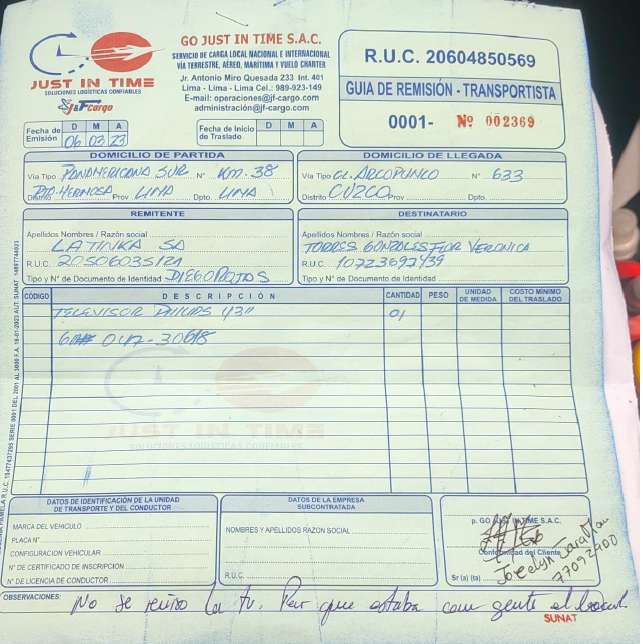 GO JUST IN TIME S.A.C.
SERVICIO DE CARGA LOCAL NACIONAL E INTERNACIONAL
VÍA TERRESTRE, AÉREO, MARÍTIMA Y VUELO CHARTER
Jr. Antonio Miro Quesada 233 Int. 401
Lima - Lima - Lima Cel.: 989-923-149
E-mail: operaciones@jf-cargo.com
administración@jf-cargo.com
JUST IN TIME
SOLUCIONES LOGÍSTICAS CONFIABLES
J&F cargo
R.U.C. 20604850569
GUIA DE REMISIÓN - TRANSPORTISTA
0001- Nº 002369
Fecha de Emisión D M A
06 03 23
Fecha de Inicio de Traslado D M A
DOMICILIO DE PARTIDA
Vía Tipo PANAMERICANA SUR N° Km. 38
Distrito PTO. HERMOSA Prov LIMA Dpto. LIMA
DOMICILIO DE LLEGADA
Vía Tipo CL. ARCOPUNCO N° 633
Distrito CUZCO Prov Dpto.
REMITENTE
Apellidos Nombres / Razón social
LATINKA SA
R.U.C. 20506035121
Tipo y N° de Documento de Identidad DIEGO ROJAS
DESTINATARIO
Apellidos Nombres / Razón social
TORRES GONZALES FLOR VERONICA
R.U.C. 10723697439
Tipo y N° de Documento de Identidad
CÓDIGO DESCRIPCIÓN CANTIDAD PESO UNIDAD DE MEDIDA COSTO MÍNIMO DEL TRASLADO
TELEVISOR PHILIPS 43" 01
047-30618
JUST IN TIME
SOLUCIONES LOGÍSTICAS CONFIABLES
DATOS DE IDENTIFICACIÓN DE LA UNIDAD DE TRANSPORTE Y DEL CONDUCTOR
MARCA DEL VEHICULO
PLACA N°
CONFIGURACION VEHICULAR
N° DE CERTIFICADO DE INSCRIPCION
N° DE LICENCIA DE CONDUCTOR
DATOS DE LA EMPRESA SUBCONTRATADA
NOMBRES Y APELLIDOS RAZON SOCIAL
R.U.C.
p. GO JUST IN TIME S.A.C.
Conformidad del Cliente
Sr (a) (ta)
Jocelyn
77092400
OBSERVACIONES: No se reviso la tv. Por que estaba con gente el local.
SUNAT